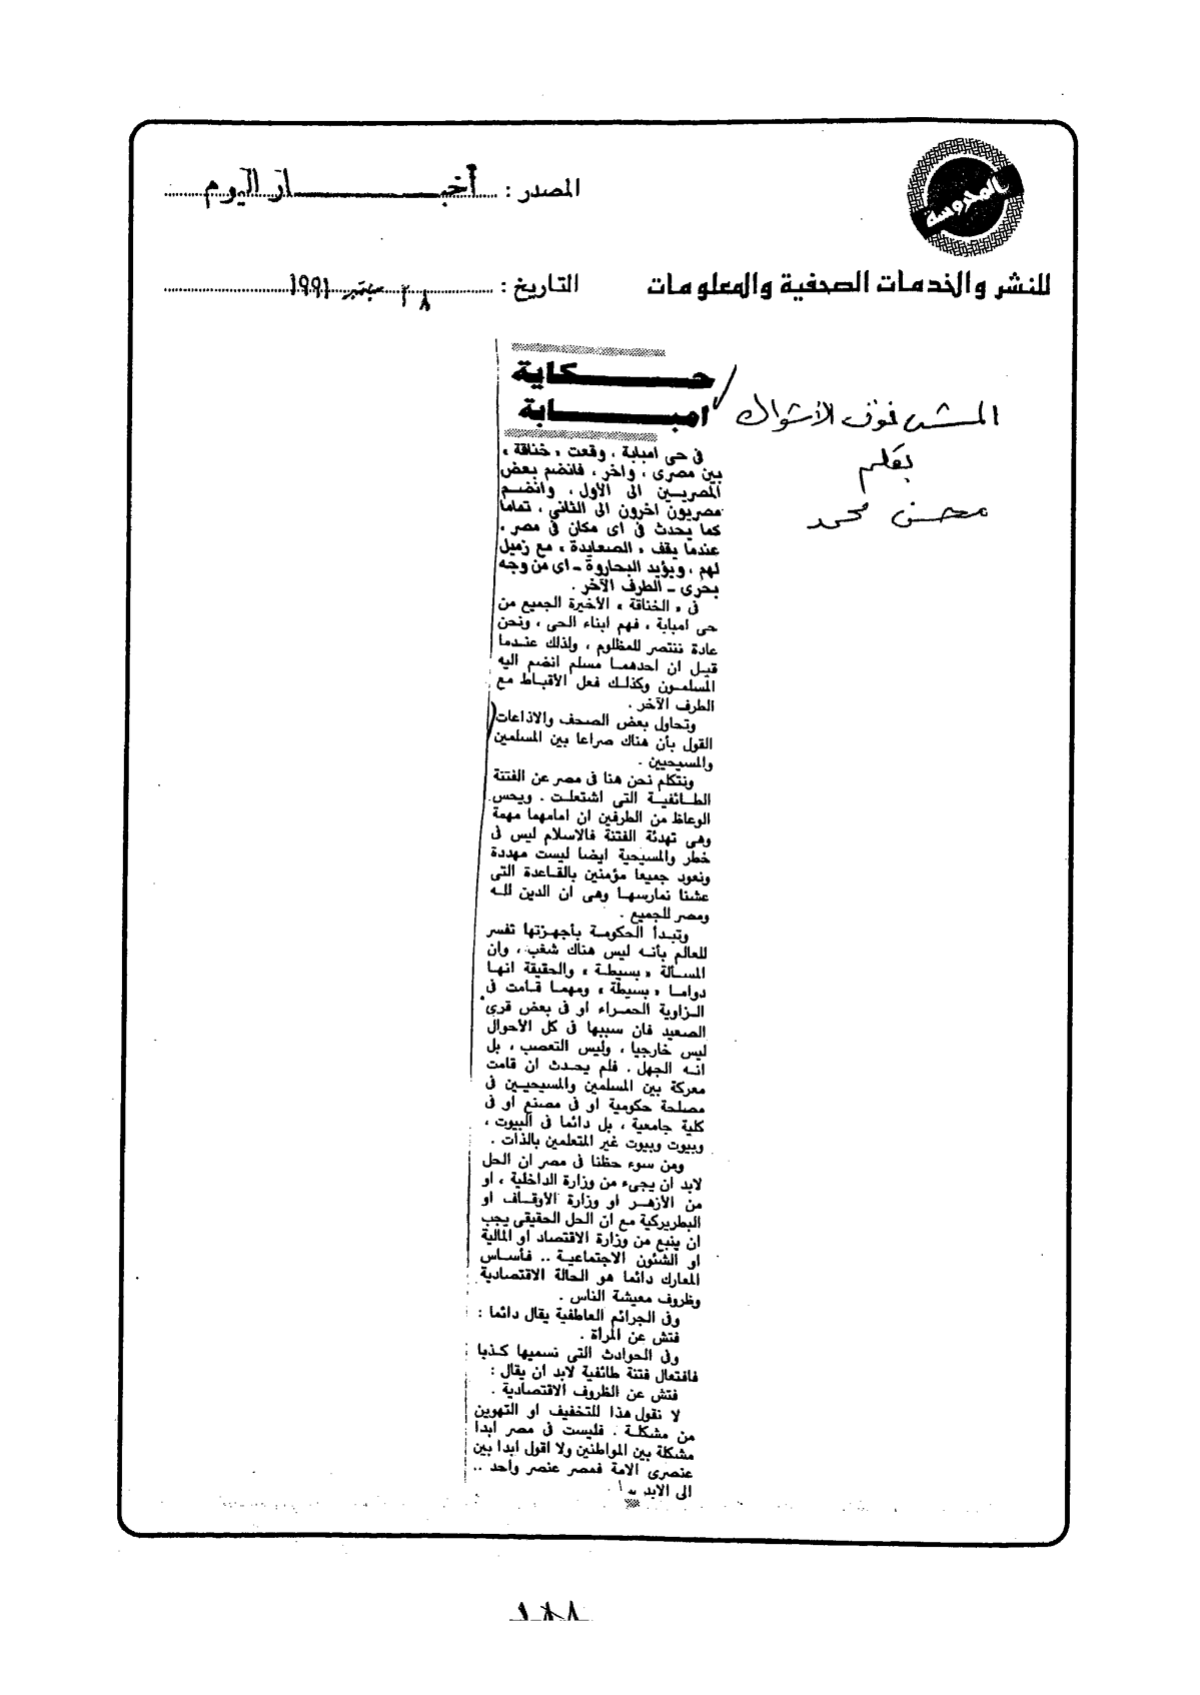 المحروسة
للنشر والخدمات الصحفية والمعلومات
المصدر : أخبار اليوم
التاريخ : ٢٨ سبتمبر ١٩٩١
المشى فوق الأشواك
بقلم
محسن محمد
حكاية
امبابة
فى حى امبابة ، وقعت « خناقة »
بين مصرى ، واخر ، فانضم بعض
المصريين الى الأول ، وانضم
مصريون اخرون الى الثانى ، تماما
كما يحدث فى اى مكان فى مصر .
عندما يقف « الصعايدة » مع زميل
لهم ، ويؤيد البحاروة - اى من وجه
بحرى - الطرف الآخر .
فى « الخناقة » الأخيرة الجميع من
حى امبابة ، فهم ابناء الحى ، ونحن
عادة ننتصر للمظلوم ، ولذلك عندما
قيل ان احدهما مسلم انضم اليه
المسلمون وكذلك فعل الأقباط مع
الطرف الآخر .
وتحاول بعض الصحف والاذاعات
القول بأن هناك صراعا بين المسلمين
والمسيحيين .
ونتكلم نحن هنا فى مصر عن الفتنة
الطائفية التى اشتعلت . ويحس
الوعاظ من الطرفين ان امامهما مهمة
وهى تهدئة الفتنة فالاسلام ليس فى
خطر والمسيحية ايضا ليست مهددة
ونعود جميعا مؤمنين بالقاعدة التى
عشنا نمارسها وهى ان الدين لله
ومصر للجميع .
وتبدأ الحكومة بأجهزتها تفسر
للعالم بأنه ليس هناك شغب ، وان
المسألة « بسيطة » والحقيقة انها
دواما « بسيطة » ومهما قامت فى
الزاوية الحمراء او فى بعض قرى
الصعيد فان سببها فى كل الأحوال
ليس خارجيا ، وليس التعصب ، بل
انه الجهل . فلم يحدث ان قامت
معركة بين المسلمين والمسيحيين فى
مصلحة حكومية او فى مصنع او فى
كلية جامعية ، بل دائما فى البيوت ،
وبيوت وبيوت غير المتعلمين بالذات .
ومن سوء حظنا فى مصر ان الحل
لابد ان يجىء من وزارة الداخلية ، او
من الأزهر او وزارة الأوقاف او
البطريركية مع ان الحل الحقيقى يجب
ان ينبع من وزارة الاقتصاد او المالية
او الشئون الاجتماعية .. فأساس
المعارك دائما هو الحالة الاقتصادية
وظروف معيشة الناس .
وفى الجرائم العاطفية يقال دائما :
فتش عن المرأة .
وفى الحوادث التى نسميها كذبا
فافتعال فتنة طائفية لابد ان يقال :
فتش عن الظروف الاقتصادية .
لا نقول هذا للتخفيف او التهوين
من مشكلة . فليست فى مصر ابدا
مشكلة بين المواطنين ولا اقول ابدا بين
عنصرى الامة فمصر عنصر واحد ..
الى الابد